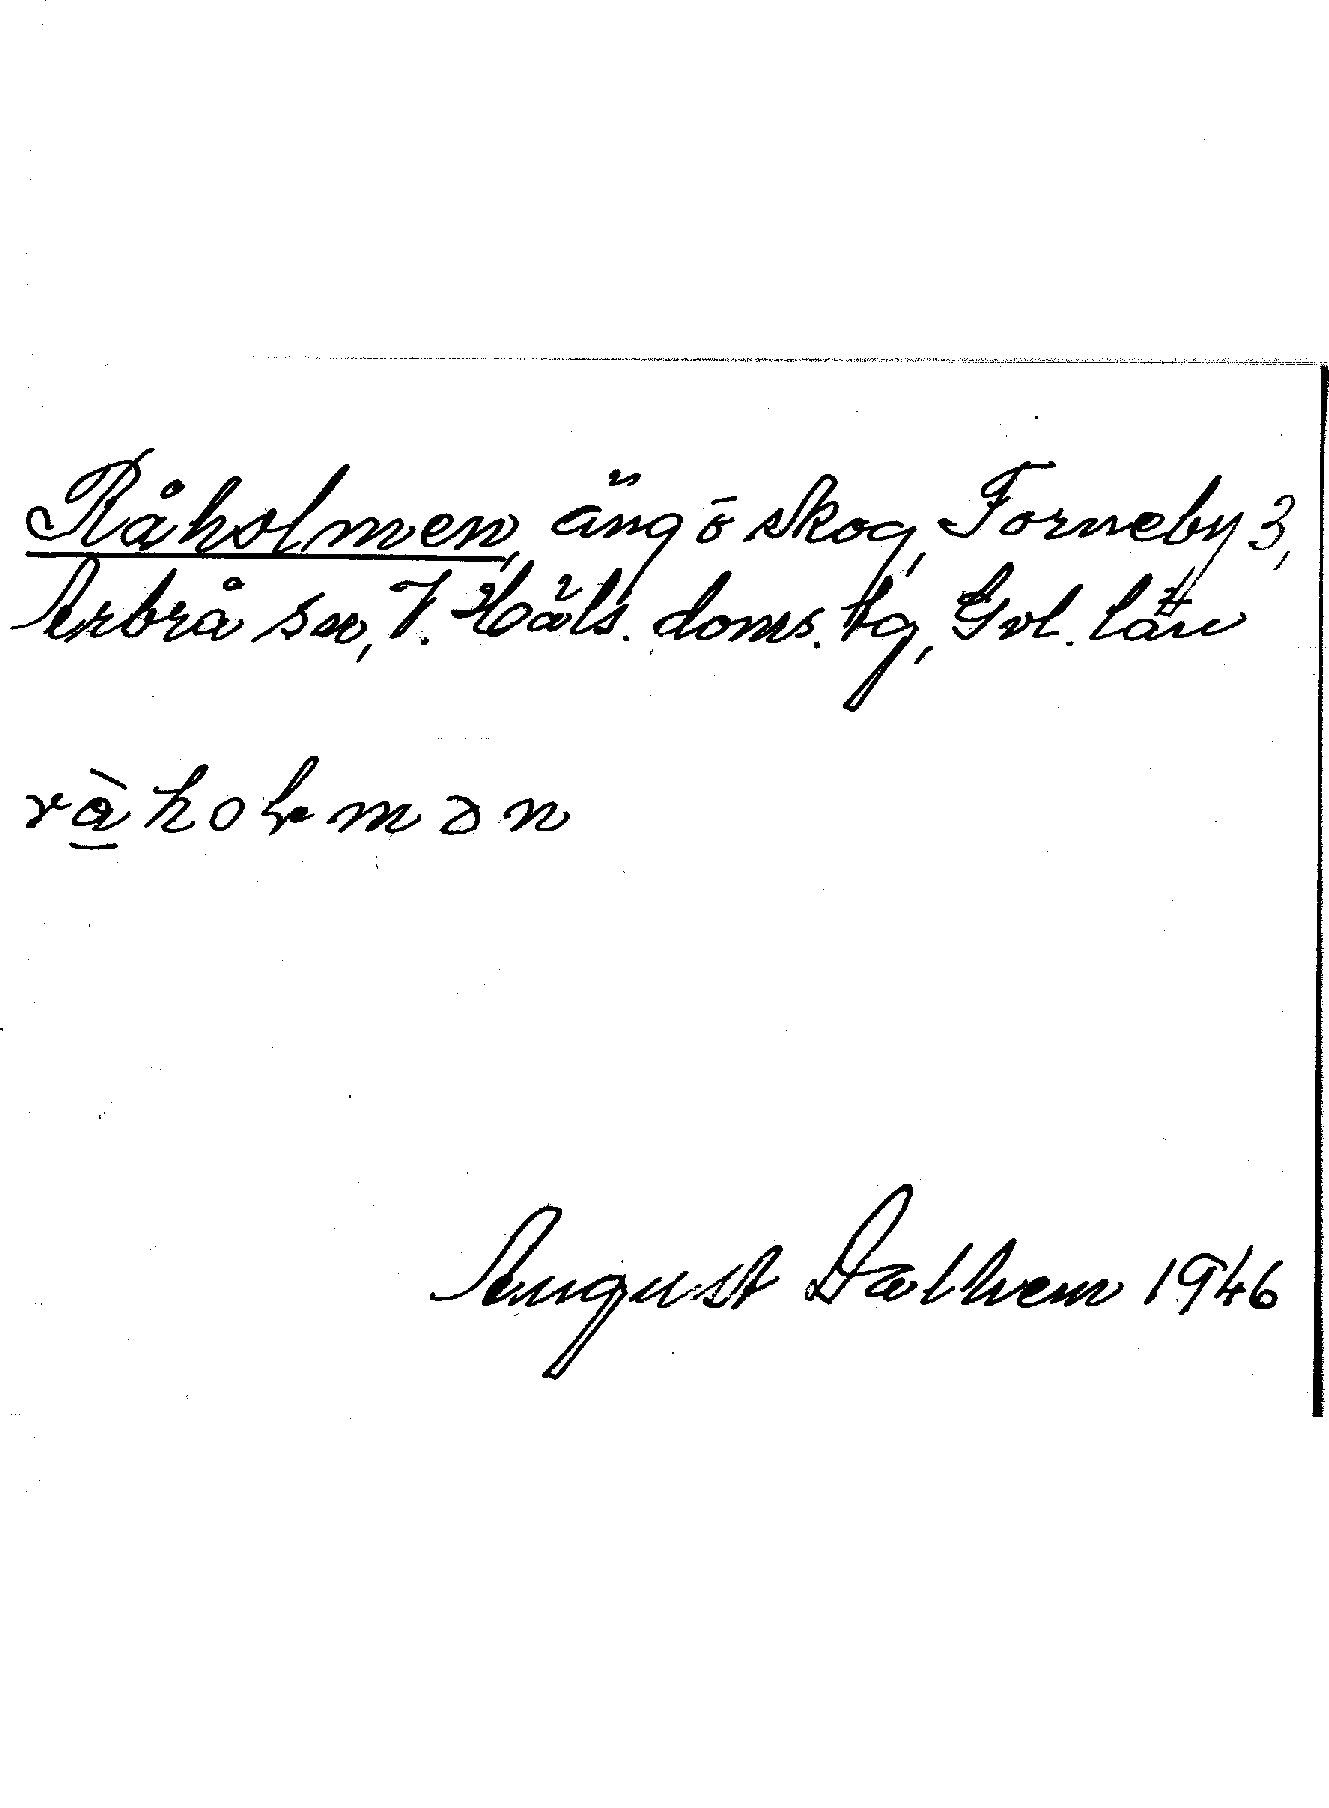 Råholmen, äng ō skog, Forneby 3,
Arbrå sn, V. Häls. doms. tg, Gvl. län
rà̱holmən
August Dalhem 1946